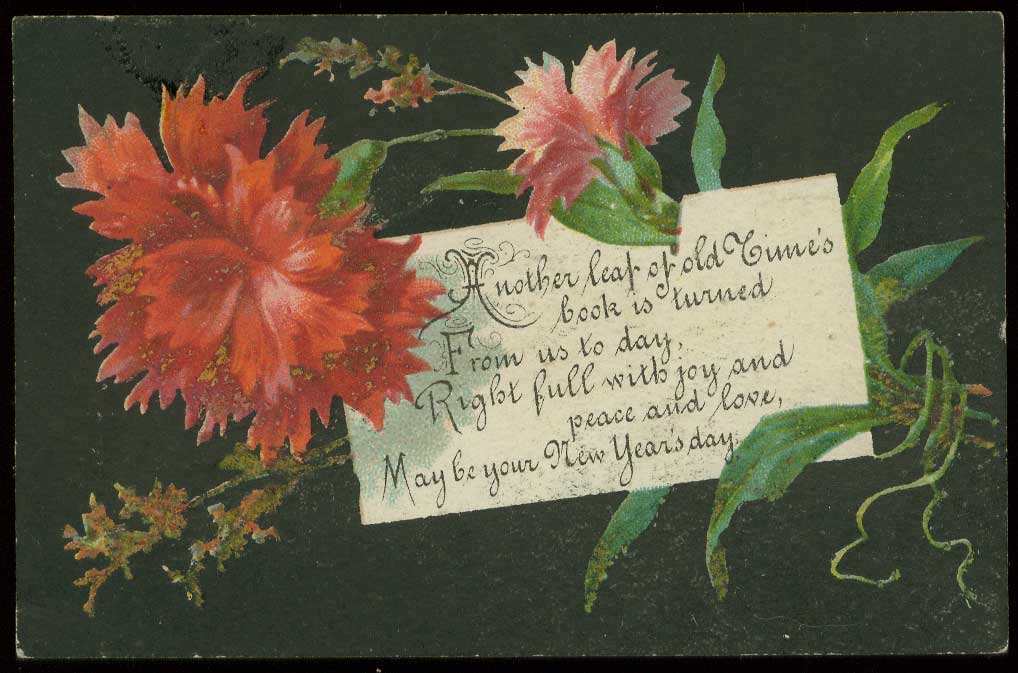 Another leaf of old Time's
book is turned
From us to day,
Right full with joy and
peace and love,
May be your New Year's day.